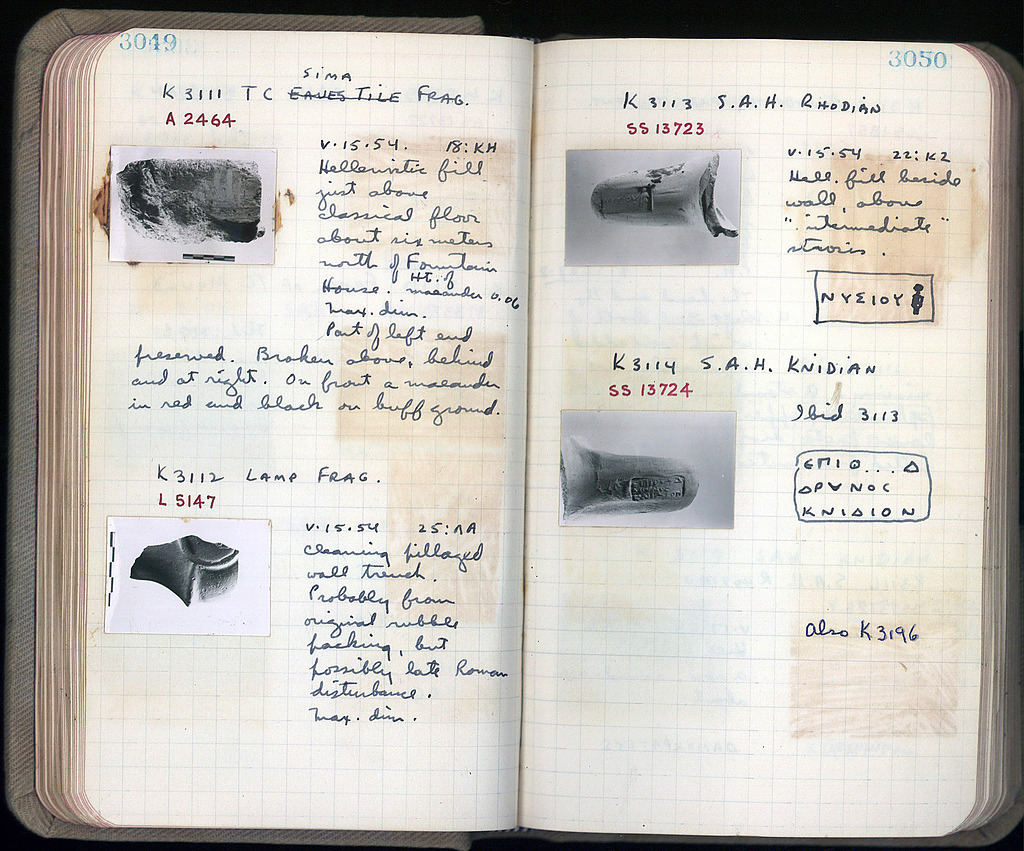 3049
SIMA
K 3111 TC EAVES TILE FRAG.
A 2464
V.15.54. 18:KH
Hellenistic fill
just above
classical floor
about six meters
north of Fountain
House. Ht. of maeander 0.06
Max. dim.
Part of left end
preserved. Broken above, behind
and at right. On front a maeander
in red and black on buff ground.
K 3112 LAMP FRAG.
L 5147
V.15.54 25:ΛΑ
Cleaning pillaged
wall trench.
Probably from
original rubble
packing, but
possibly late Roman
disturbance.
Max. dim.
3050
K 3113 S.A.H. RHODIAN
SS 13723
V.15.54 22:KZ
Hell. fill beside
wall, above
"intermediate"
strosis.
ΝΥΣΙΟΥ
K 3114 S.A.H. KNIDIAN
SS 13724
Ibid 3113
ЄΠΙΘ...Δ
ΔΡΥΝΟC
ΚΝΙΔΙΟΝ
also K 3196